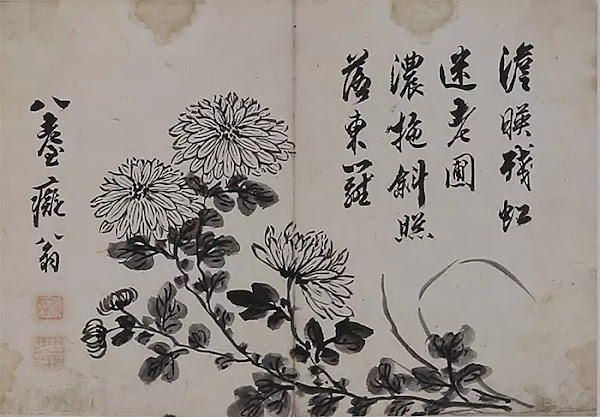 澹暎殘虹
迷老圃
濃拖斜照
落東籬
八耋癡翁